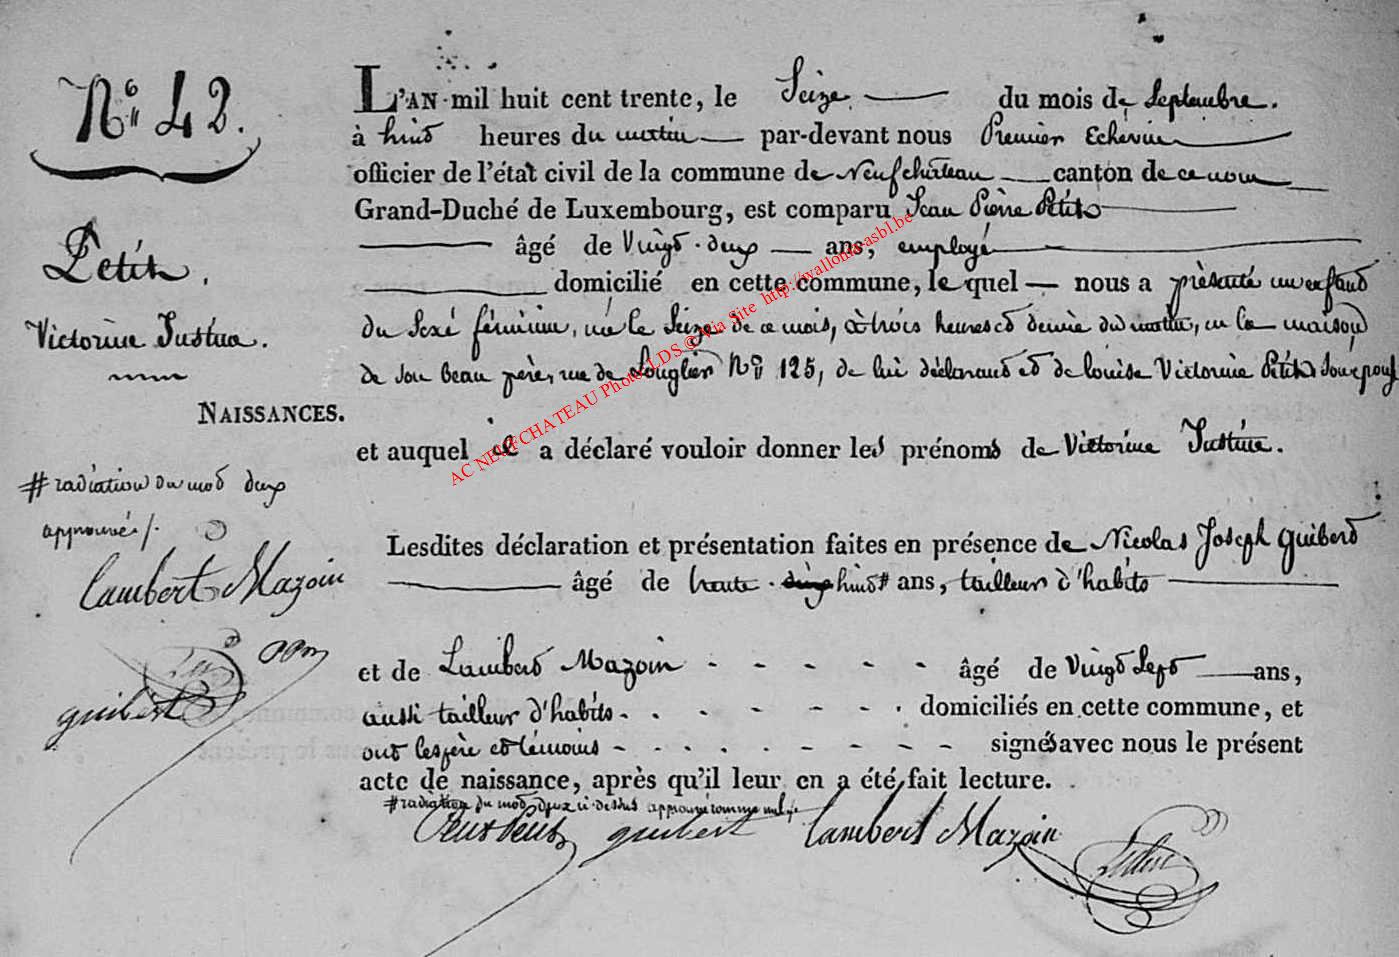 N° 42.
Petit,
Victorine Justine.
NAISSANCES.
# radiation du mot deux
approuvée /.
Lambert Mazoin
guibert
L'AN mil huit cent trente, le Seize du mois de Septembre.
à huit heures du matin par-devant nous Premier Echevin
officier de l'état civil de la commune de Neufchâteau canton de ce nom
Grand-Duché de Luxembourg, est comparu Jean Pierre Petit
âgé de Vingt-deux ans, employé
domicilié en cette commune, le quel nous a présenté un enfant
du Sexe féminin, née le Seize de ce mois, à trois heures et demie du matin, en la maison
de son beau père, rue de Longlier N° 125, de lui déclarant et de Louise Victorine Petit Son épouse
et auquel il a déclaré vouloir donner les prénoms de Victorine Justine.
Lesdites déclaration et présentation faites en présence de Nicolas Joseph Guibert
âgé de trente-deux huit # ans, tailleur d'habits
et de Lambert Mazoin - - - - - âgé de Vingt Sept ans,
aussi tailleur d'habits - - - - - - - domiciliés en cette commune, et
ont les père et témoins - - - - - - - - - signés avec nous le présent
acte de naissance, après qu'il leur en a été fait lecture.
# radiation du mot deux ci-dessus approuvé comme nul
guibert Lambert Mazoin
AC NEUFCHATEAU Photo LDS @ Via Site http://wallonia-asbl.be